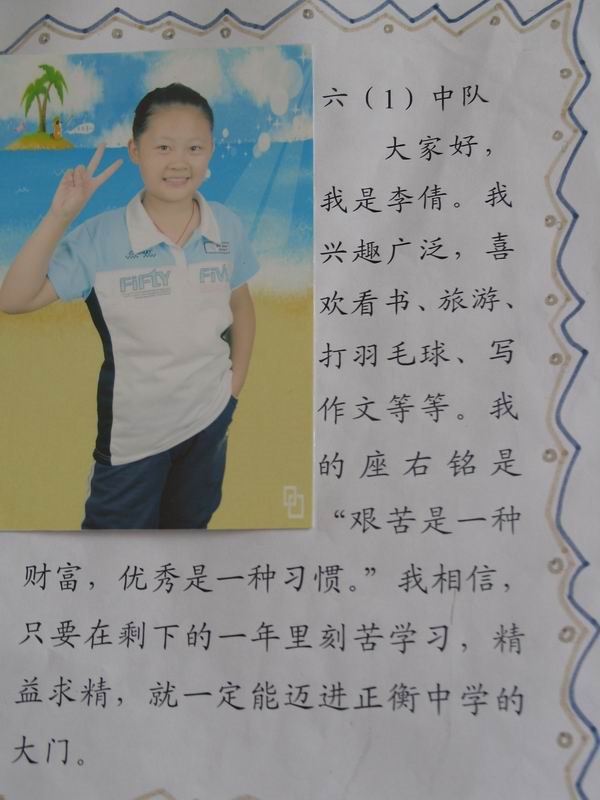 六（1）中队
大家好，
我是李倩。我
兴趣广泛，喜
欢看书、旅游、
打羽毛球、写
作文等等。我
的座右铭是
“艰苦是一种
财富，优秀是一种习惯。”我相信，
只要在剩下的一年里刻苦学习，精
益求精，就一定能迈进正衡中学的
大门。
FiFTY
FiV